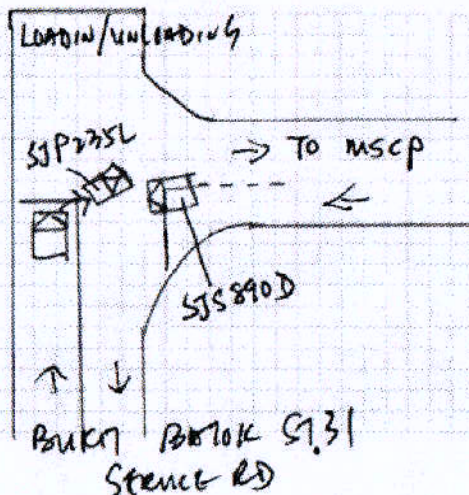 LOADIN/UNLOADING
SJP235L
→ TO MSCP
←
SJS890D
↑ ↓
BUKIT BATOK ST.31
SERVICE RD